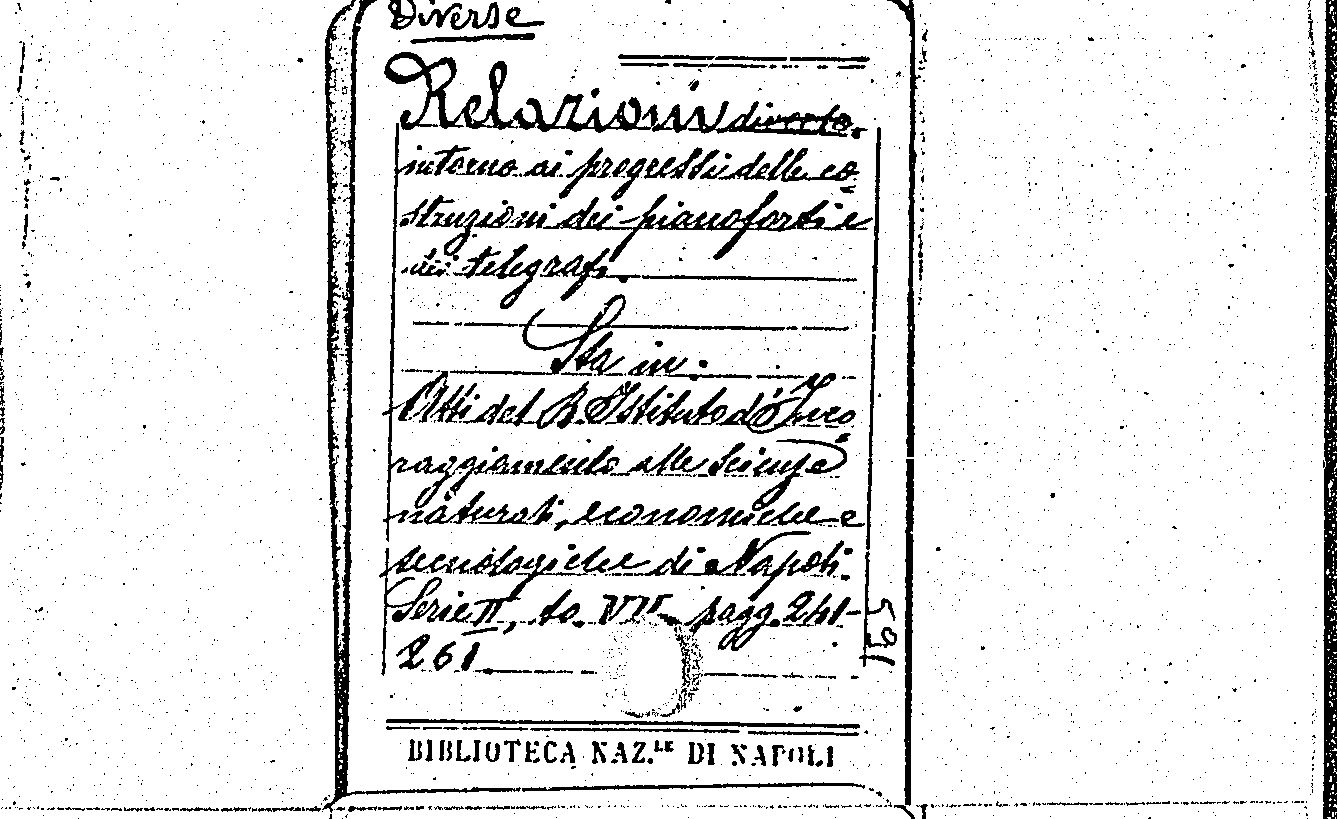 Diverse
Relazioni diverse.
intorno ai progressi delle co
struzioni dei pianoforti e
dei telegrafi.
Sta in:
Atti del R. Istituto d'Inco
raggiamento alle Scienze
naturali, economiche e
tecnologiche di Napoli.
Serie II, to. VII pagg. 241-
261.
591
BIBLIOTECA NAZ.LE DI NAPOLI